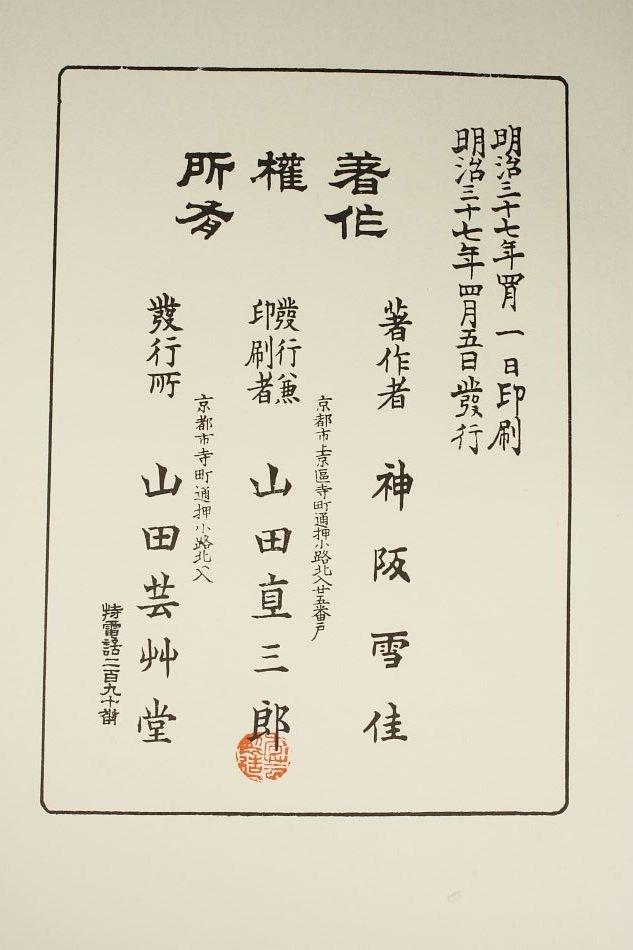 明治三十七年四月一日印刷
明治三十七年四月五日發行
著作
權
所有
著作者 神阪雪佳
京都市上京區寺町通押小路北入廿五番戸
發行兼
印刷者 山田直三郎
京都市寺町通押小路北入
發行所 山田芸艸堂
特電話二百九十番